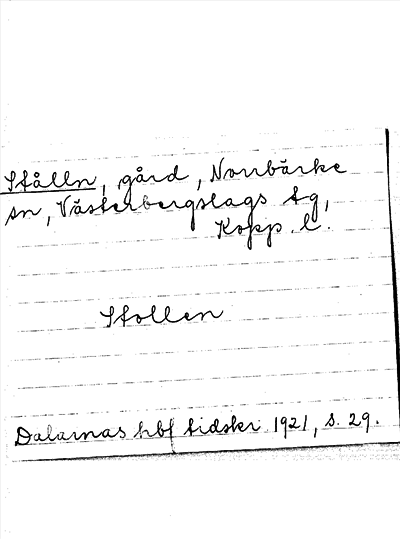 Stålln, gård, Norrbärke
sn, Västerbergslags tg,
Kopp. l.
Stollen
Dalarnas hbf tidskr 1921, s. 29.